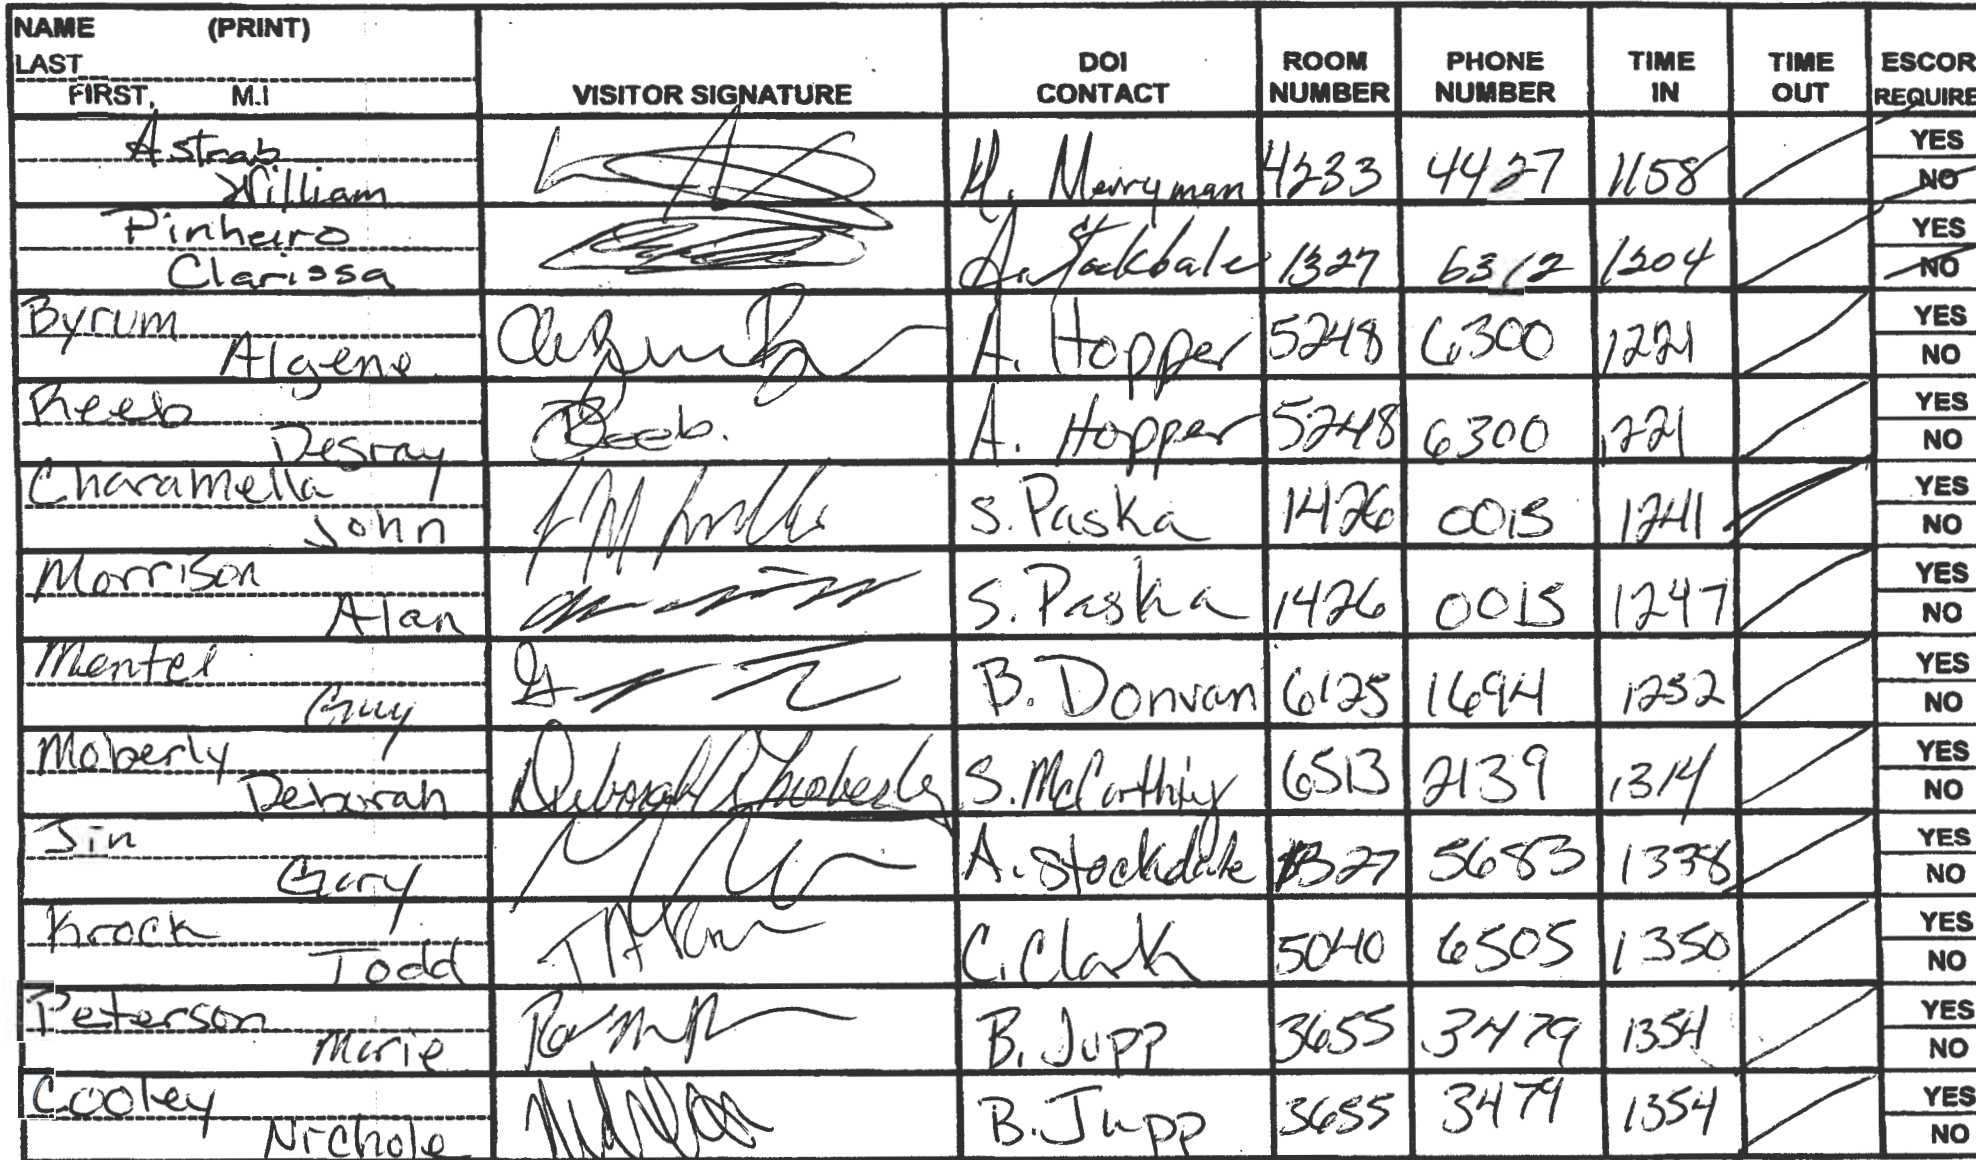 NAME (PRINT)
LAST
FIRST, M.I
VISITOR SIGNATURE
DOI CONTACT
ROOM NUMBER
PHONE NUMBER
TIME IN
TIME OUT
ESCOR REQUIRE
Astrab
William
H. Merryman 4233 4427 1158
YES
NO
Pinheiro
Clarissa
A. Stockdale 1327 6312 1204
YES
NO
Byrum
Algene
A. Hopper 5248 6300 1221
YES
NO
Reeb
Desray
Reeb.
A. Hopper 5248 6300 1221
YES
NO
Charamella
John
S. Paska 1426 0015 1241
YES
NO
Morrison
Alan
S. Paska 1426 0015 1247
YES
NO
Mentel
Guy
B. Donvan 6125 1694 1252
YES
NO
Moberly
Deborah
Deborah Moberly
S. McCarthiy 6513 2139 1314
YES
NO
Jin
Gary
A. Stockdale 1327 5683 1338
YES
NO
Krock
Todd
C. Clark 5040 6505 1350
YES
NO
Peterson
Marie
B. Jupp 3655 3479 1354
YES
NO
Cooley
Nichole
B. Jupp 3655 3479 1354
YES
NO